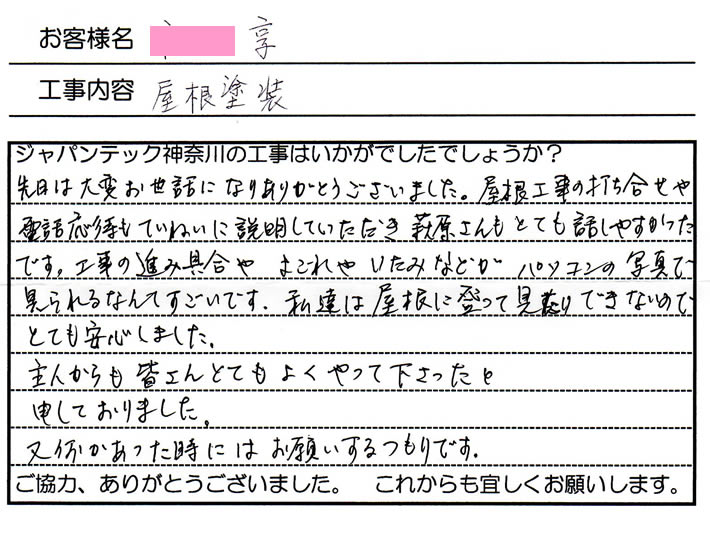 お客様名 享
工事内容 屋根塗装
ジャパンテック神奈川の工事はいかがでしたでしょうか？
先日は大変お世話になりありがとうございました。屋根工事の打ち合せや
電話応待もていねいに説明していただき萩原さんもとても話しやすかった
です。工事の進み具合や よごれや いたみなどが パソコンの写真で
見られるなんてすごいです。私達は屋根に登って見たりできないので
とても安心しました。
主人からも皆さんとてもよくやって下さったと
申しておりました。
又何かあった時にはお願いするつもりです。
ご協力、ありがとうございました。 これからも宜しくお願いします。